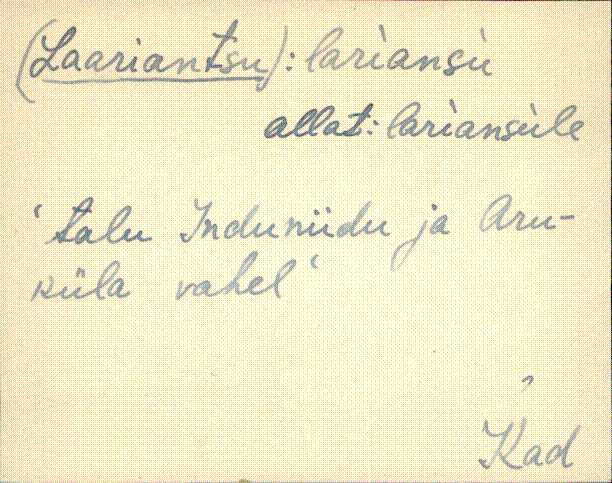 (Laariantsu): lariansù
allat: lariansùle
‘talu Induniidu ja Aru-
küla vahel‘
Kad